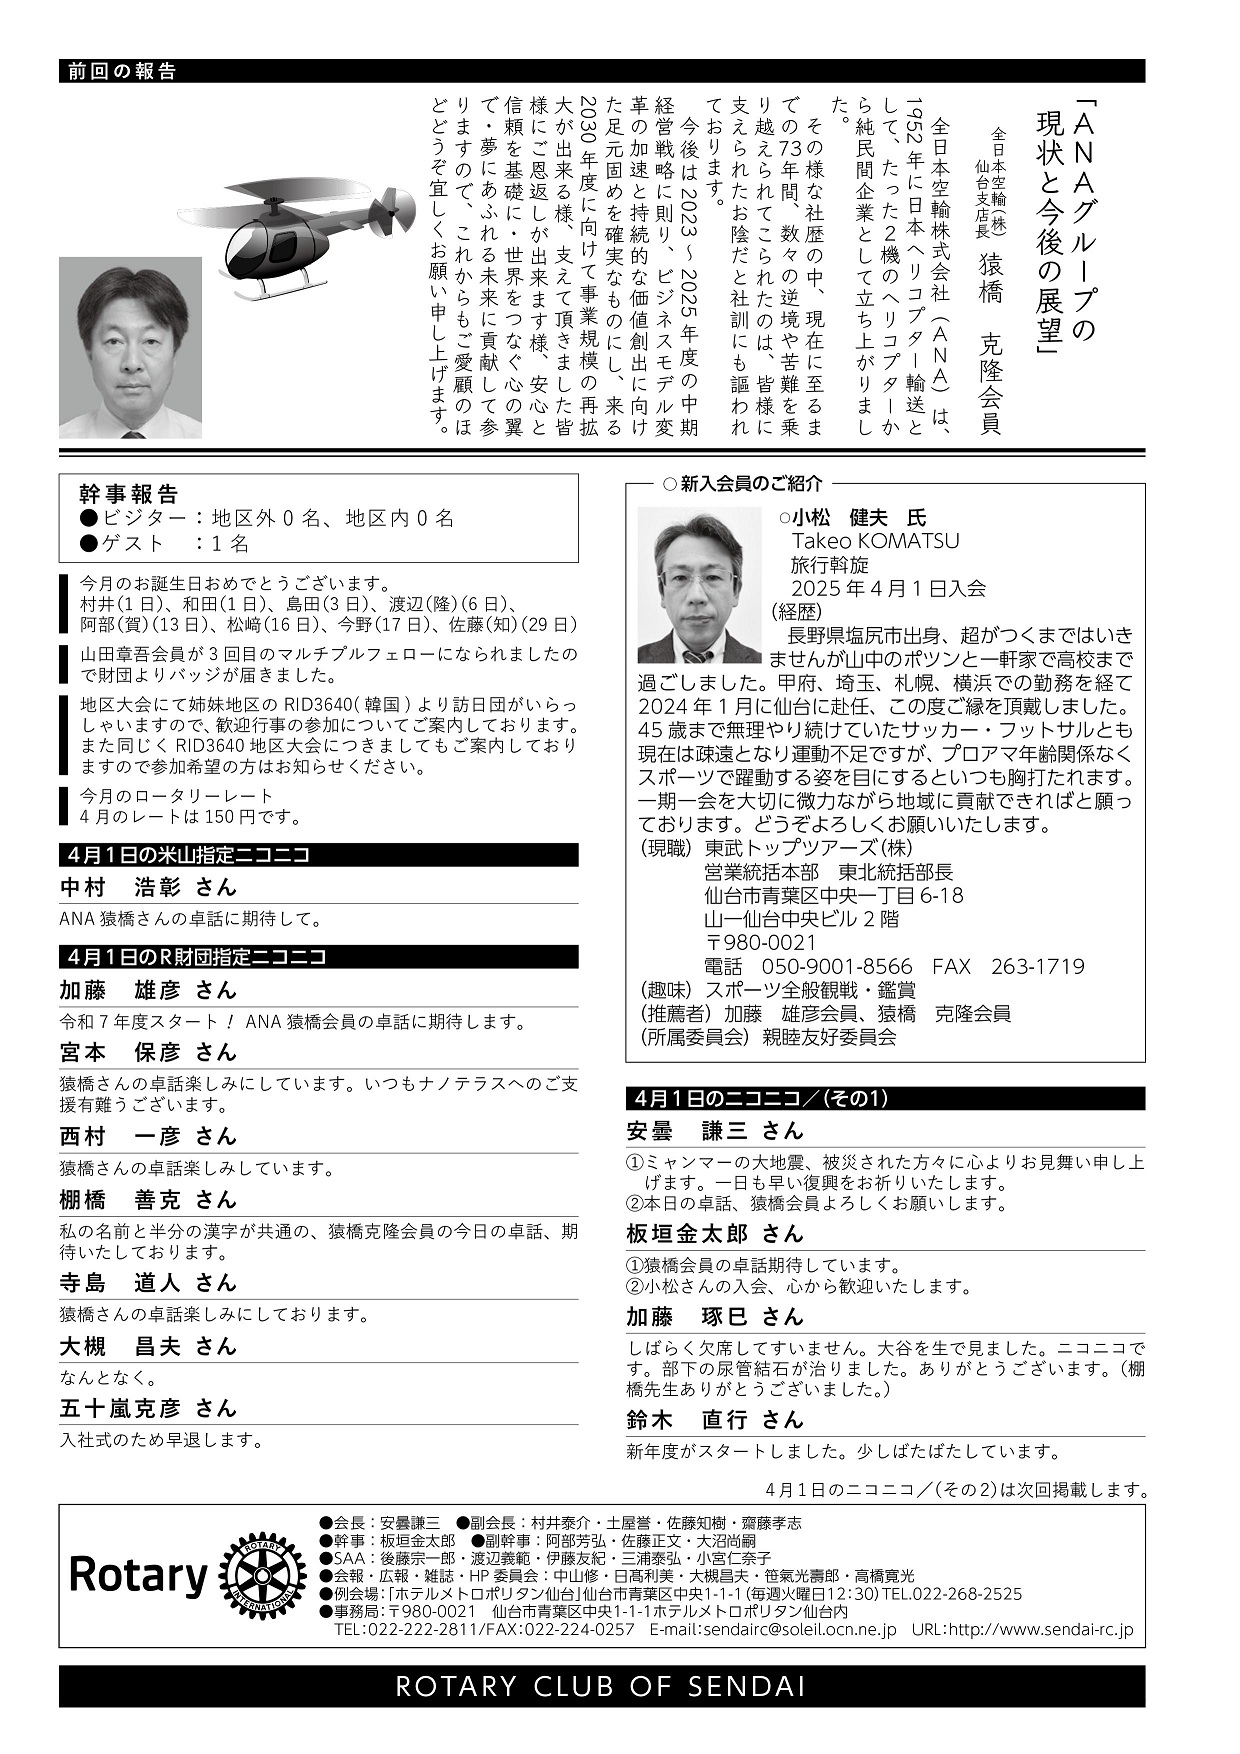 前回の報告
「ANAグループの
現状と今後の展望」
全日本空輸(株)
仙台支店長 猿橋　克隆会員
　全日本空輸株式会社（ANA）は、
1952年に日本ヘリコプター輸送と
して、たった2機のヘリコプターか
ら純民間企業として立ち上がりまし
た。
　その様な社歴の中、現在に至るま
での73年間、数々の逆境や苦難を乗
り越えられてこられたのは、皆様に
支えられたお陰だと社訓にも謳われ
ております。
　今後は2023～2025年度の中期
経営戦略に則り、ビジネスモデル変
革の加速と持続的な価値創出に向け
た足元固めを確実なものにし、来る
2030年度に向けて事業規模の再拡
大が出来る様、支えて頂きました皆
様にご恩返しが出来ます様、安心と
信頼を基礎に・世界をつなぐ心の翼
で・夢にあふれる未来に貢献して参
りますので、これからもご愛顧のほ
どどうぞ宜しくお願い申し上げます。
幹事報告
●ビジター：地区外0名、地区内0名
●ゲスト　：1名
今月のお誕生日おめでとうございます。
村井(1日)、和田(1日)、島田(3日)、渡辺(隆)(6日)、
阿部(賀)(13日)、松﨑(16日)、今野(17日)、佐藤(知)(29日)
山田章吾会員が3回目のマルチプルフェローになられましたの
で財団よりバッジが届きました。
地区大会にて姉妹地区のRID3640(韓国)より訪日団がいらっ
しゃいますので、歓迎行事の参加についてご案内しております。
また同じくRID3640地区大会につきましてもご案内しており
ますので参加希望の方はお知らせください。
今月のロータリーレート
4月のレートは150円です。
4月1日の米山指定ニコニコ
中村　浩彰 さん
ANA猿橋さんの卓話に期待して。
4月1日のR財団指定ニコニコ
加藤　雄彦 さん
令和7年度スタート！ANA猿橋会員の卓話に期待します。
宮本　保彦 さん
猿橋さんの卓話楽しみにしています。いつもナノテラスへのご支
援有難うございます。
西村　一彦 さん
猿橋さんの卓話楽しみしています。
棚橋　善克 さん
私の名前と半分の漢字が共通の、猿橋克隆会員の今日の卓話、期
待いたしております。
寺島　道人 さん
猿橋さんの卓話楽しみにしております。
大槻　昌夫 さん
なんとなく。
五十嵐克彦 さん
入社式のため早退します。
○新入会員のご紹介
○小松　健夫　氏
Takeo KOMATSU
旅行斡旋
2025年4月1日入会
（経歴）
　長野県塩尻市出身、超がつくまではいき
ませんが山中のポツンと一軒家で高校まで
過ごしました。甲府、埼玉、札幌、横浜での勤務を経て
2024年1月に仙台に赴任、この度ご縁を頂戴しました。
45歳まで無理やり続けていたサッカー・フットサルとも
現在は疎遠となり運動不足ですが、プロアマ年齢関係なく
スポーツで躍動する姿を目にするといつも胸打たれます。
一期一会を大切に微力ながら地域に貢献できればと願っ
ております。どうぞよろしくお願いいたします。
（現職）東武トップツアーズ(株)
営業統括本部　東北統括部長
仙台市青葉区中央一丁目6-18
山一仙台中央ビル2階
〒980-0021
電話　050-9001-8566　FAX　263-1719
（趣味）スポーツ全般観戦・鑑賞
（推薦者）加藤　雄彦会員、猿橋　克隆会員
（所属委員会）親睦友好委員会
4月1日のニコニコ／(その1)
安曇　謙三 さん
①ミャンマーの大地震、被災された方々に心よりお見舞い申し上
げます。一日も早い復興をお祈りいたします。
②本日の卓話、猿橋会員よろしくお願いします。
板垣金太郎 さん
①猿橋会員の卓話期待しています。
②小松さんの入会、心から歓迎いたします。
加藤　琢巳 さん
しばらく欠席してすいません。大谷を生で見ました。ニコニコで
す。部下の尿管結石が治りました。ありがとうございます。（棚
橋先生ありがとうございました。）
鈴木　直行 さん
新年度がスタートしました。少しばたばたしています。
4月1日のニコニコ／(その2)は次回掲載します。
Rotary
ROTARY
INTERNATIONAL
●会長：安曇謙三　●副会長：村井泰介・土屋誉・佐藤知樹・齋藤孝志
●幹事：板垣金太郎　●副幹事：阿部芳弘・佐藤正文・大沼尚嗣
●SAA：後藤宗一郎・渡辺義範・伊藤友紀・三浦泰弘・小宮仁奈子
●会報・広報・雑誌・HP委員会：中山修・日髙利美・大槻昌夫・笹氣光壽郎・高橋寛光
●例会場：[ホテルメトロポリタン仙台]仙台市青葉区中央1-1-1(毎週火曜日12:30)TEL.022-268-2525
●事務局：〒980-0021　仙台市青葉区中央1-1-1ホテルメトロポリタン仙台内
TEL:022-222-2811/FAX:022-224-0257　E-mail:sendairc@soleil.ocn.ne.jp　URL:http://www.sendai-rc.jp
ROTARY CLUB OF SENDAI